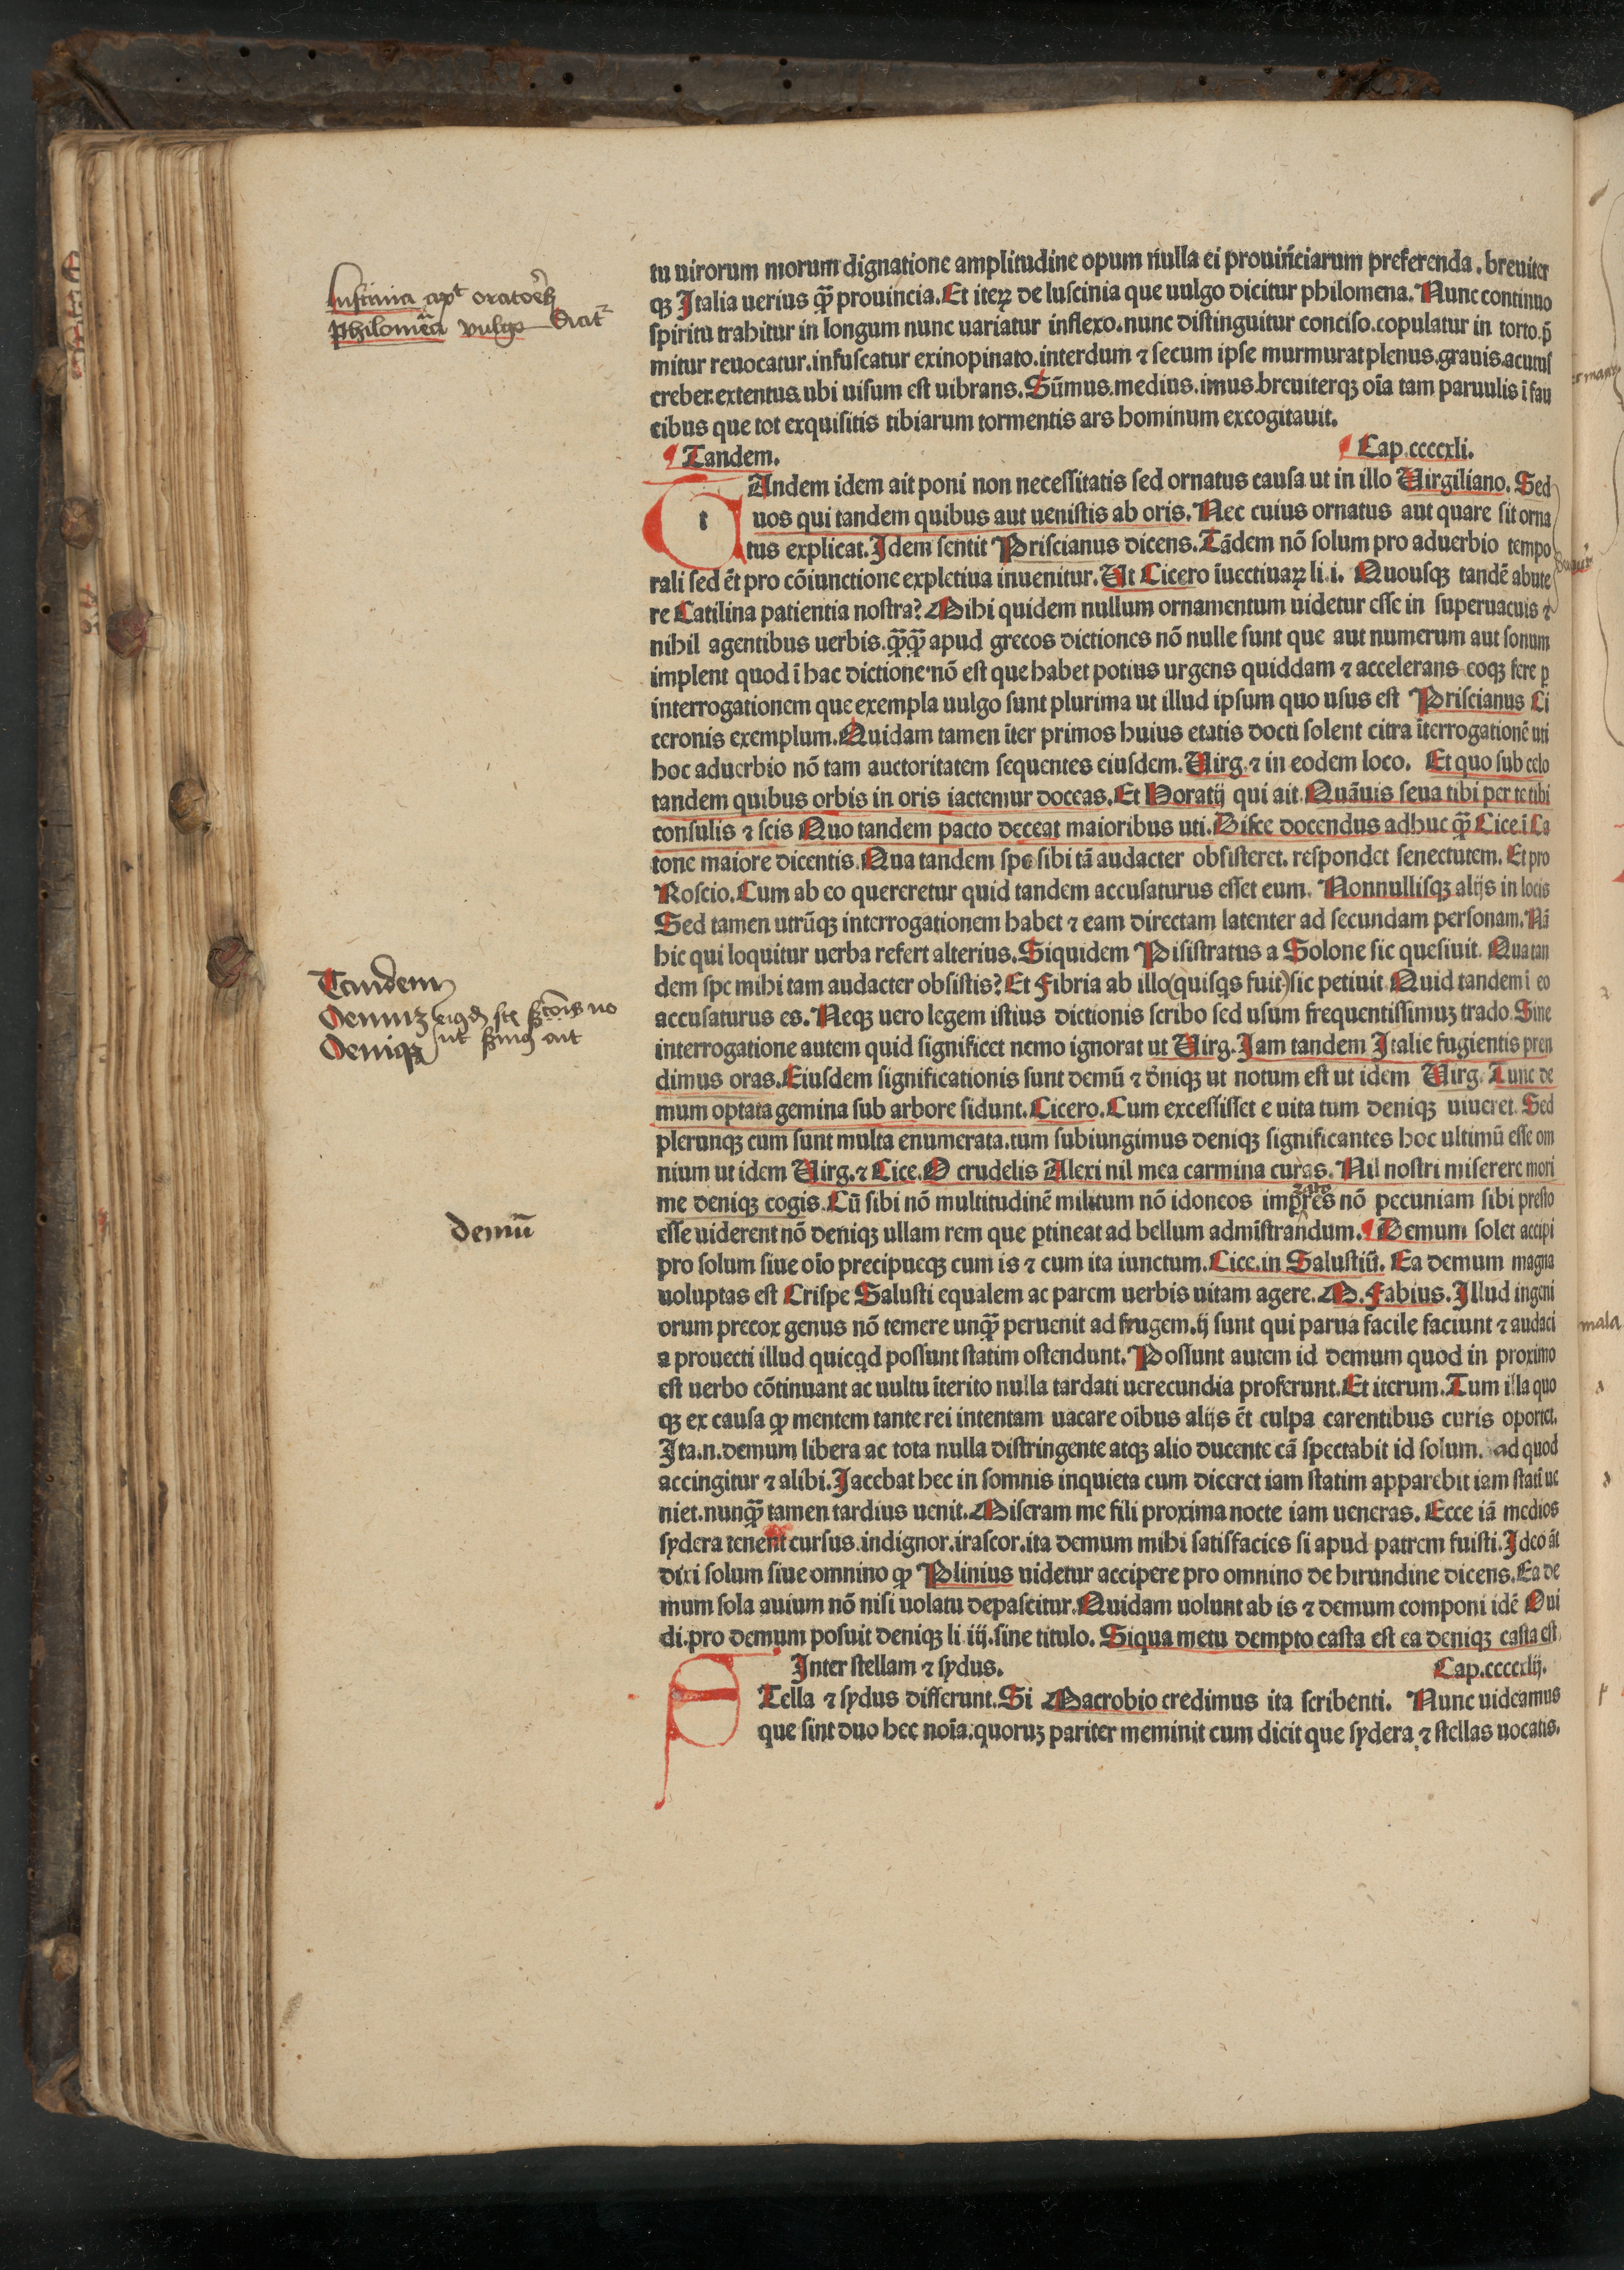 tu uirorum morum dignatione amplitudine opum nulla ei prouinciarum preferenda. breuiter
qꝫ Italia uerius qꝫ̃ prouincia. Et iteꝝ de luscinia que uulgo dicitur philomena. Nunc continuo
spiritu trahitur in longum nunc uariatur inflexo. nunc distinguitur conciso. copulatur in torto. p̃
mitur reuocatur. infuscatur exinopinato. interdum ⁊ secum ipse murmurat plenus. grauis. acutus
creber. extentus. ubi uisum est uibrans. Sũmus. medius. imus. breuiterqꝫ oĩa tam paruulis ĩ fau
cibus que tot exquisitis tibiarum tormentis ars hominum excogitauit.
¶ Tandem. ¶ Cap. ccccxli.
tAndem idem ait poni non necessitatis sed ornatus causa ut in illo Uirgiliano. Sed
uos qui tandem quibus aut uenistis ab oris. Nec cuius ornatus aut quare sit orna
tus explicat. Idem sentit Priscianus dicens. Tãdem nõ solum pro aduerbio tempo
rali sed ẽt pro cõiunctione expletiua inuenitur. Ut Cicero ĩuectiuaꝝ li. i. Quousqꝫ tandẽ abute
re Catilina patientia nostra? Mihi quidem nullum ornamentum uidetur esse in superuacuis ⁊
nihil agentibus uerbis. qꝫ̃qꝫ̃ apud grecos dictiones nõ nulle sunt que aut numerum aut sonum
implent quod ĩ hac dictione nõ est que habet potius urgens quiddam ⁊ accelerans eoqꝫ fere ꝑ
interrogationem que exempla uulgo sunt plurima ut illud ipsum quo usus est Priscianus Ci
ceronis exemplum. Quidam tamen ĩter primos huius etatis docti solent citra ĩterrogationẽ uti
hoc aduerbio nõ tam auctoritatem sequentes eiusdem. Uirg. ⁊ in eodem loco. Et quo sub celo
tandem quibus orbis in oris iactemur doceas. Et Horatij qui ait. Quãuis seua tibi per te tibi
consulis ⁊ scis Quo tandem pacto deceat maioribus uti. Disce docendus adhuc qꝫ̃ Cice. ĩ Ca
tone maiore dicentis. Qua tandem spe sibi tã audacter obsisteret. respondet senectutem. Et pro
Roscio. Cum ab eo quereretur quid tandem accusaturus esset eum. Nonnullisqꝫ alijs in locis
Sed tamen utrũqꝫ interrogationem habet ⁊ eam directam latenter ad secundam personam. Nã
hic qui loquitur uerba refert alterius. Siquidem Pisistratus a Solone sic quesiuit. Qua tan
dem spe mihi tam audacter obsistis? Et Fibria ab illo (quisqs fuit) sic petiuit Quid tandem ĩ eo
accusaturus es. Neqꝫ uero legem istius dictionis scribo sed usum frequentissimuꝫ trado. Sine
interrogatione autem quid significet nemo ignorat ut Uirg. Iam tandem Italie fugientis pren
dimus oras. Eiusdem significationis sunt demũ ⁊ dñiqꝫ ut notum est ut idem Uirg. Tunc de
mum optata gemina sub arbore sidunt. Cicero. Cum excessisset e uita tum deniqꝫ uiueret. Sed
plerunqꝫ cum sunt multa enumerata. tum subiungimus deniqꝫ significantes hoc ultimũ esse om
nium ut idem Uirg. ⁊ Cice. O crudelis Alexi nil mea carmina curas. Nil nostri miserere mori
me deniqꝫ cogis. Cũ sibi nõ multitudinẽ militum nõ idoneos impres nõ pecuniam sibi presto
esse uiderent nõ deniqꝫ ullam rem que ꝑtineat ad bellum admĩstrandum. ¶ Demum solet accipi
pro solum siue oĩo precipueqꝫ cum is ⁊ cum ita iunctum. Cice. in Salustiũ. Ea demum magna
uoluptas est Crispe Salusti equalem ac parem uerbis uitam agere. M. Fabius. Illud ingeni
orum precox genus nõ temere unqꝫ̃ peruenit ad frugem. ij sunt qui parua facile faciunt ⁊ audaci
a prouecti illud quicqd possunt statim ostendunt. Possunt autem id demum quod in proximo
est uerbo cõtinuant ac uultu ĩterito nulla tardati uerecundia proferunt. Et iterum. Tum illa quo
qꝫ ex causa ꝙ mentem tante rei intentam uacare oĩbus alijs ẽt culpa carentibus curis oportet.
Ita. n. demum libera ac tota nulla distringente atqꝫ alio ducente cã spectabit id solum. ad quod
accingitur ⁊ alibi. Iacebat hec in somnis inquieta cum diceret iam statim apparebit iam statĩ ue
niet. nunqꝫ̃ tamen tardius uenit. Miseram me fili proxima nocte iam ueneras. Ecce iã medios
sydera tenent cursus. indignor. irascor. ita demum mihi satisfacies si apud patrem fuisti. Ideo ãt
dixi solum siue omnino ꝙ Plinius uidetur accipere pro omnino de hirundine dicens. Ea de
mum sola auium nõ nisi uolatu depascitur. Quidam uolunt ab is ⁊ demum componi idẽ Oui
di. pro demum posuit deniqꝫ li. iij. sine titulo. Siqua metu dempto casta est ea deniqꝫ casta est.
Inter stellam ⁊ sydus. Cap. ccccxlij.
Tella ⁊ sydus differunt. Si Macrobio credimus ita scribenti. Nunc uideamus
que sint duo hec noĩa. quoruꝫ pariter meminit cum dicit que sydera ⁊ stellas uocatis.
Luscinia
Philomẽa vulgo dicit
Tandem
Demuꝫ
Deniqꝫ
demũ
mala